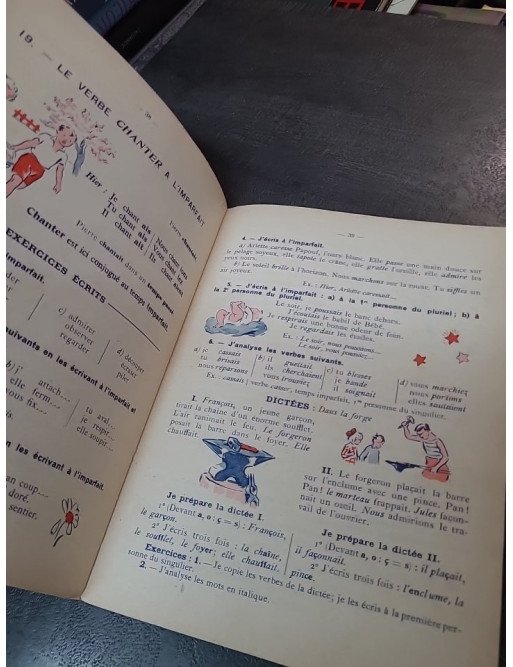 — 38 —
19. — LE VERBE CHANTER A L'IMPARFAIT
Hier :
Je chant ais
Tu chant ais
Il chant ait
Nous chant ions
Vous chant iez
Ils chant aient
Pierre chantait dans un temps passé
Chanter est ici conjugué au temps imparfait
EXERCICES ÉCRITS
imparfait.
c) admirer
observer
regarder
écrire
suivants en les écrivant à l'imparfait et
b) j' attach....
elle ferm....
vous fix....
tu arai...
je rep...
elle soupir...
en les écrivant à l'imparfait.
an coup....
doré.
sentier.
— 39 —
4. — J'écris à l'imparfait.
a) Arlette caresse Papouf, l'ours blanc. Elle passe une main douce sur
le pelage soyeux, elle tapote le crâne, elle gratte l'oreille, elle admire les
yeux noirs.
b) Le soleil brille à l'horizon. Nous marchons sur la route. Tu siffles un
air joyeux.
Ex. : Hier, Arlette caressait....
5. — J'écris à l'imparfait : a) à la 1re personne du pluriel ; b) à
la 2e personne du pluriel.
Le soir, je poussais le banc dehors.
J'écoutais le babil de Bébé.
Je respirais une bonne odeur de foin.
Je regardais les étoiles.
Ex. : Le soir, nous poussions....
Le soir, vous poussiez....
6. — J'analyse les verbes suivants.
a) je cassais
tu brisais
nous réparions
b) il guettait
ils cherchaient
vous trouviez
c) tu blesses
je bande
il soignait
d) vous marchiez
nous portions
elles sautaient
Ex. : cassais : verbe casser, temps imparfait, 1re personne du singulier.
DICTÉES : Dans la forge
I. François, un jeune garçon,
tirait la chaîne d'un énorme soufflet.
L'air ranimait le feu. Le forgeron
posait la barre dans le foyer. Elle
chauffait.
II. Le forgeron plaçait la barre
sur l'enclume avec une pince. Pan !
Pan ! le marteau frappait. Jules façon-
nait un outil. Nous admirions le tra-
vail de l'ouvrier.
Je prépare la dictée I.
1° (Devant a, o : ç = s) : François,
le garçon.
2° J'écris trois fois : la chaîne,
le soufflet, le foyer; elle chauffait.
Je prépare la dictée II.
1° (Devant a, o : ç = s) : il plaçait,
il façonnait.
2° J'écris trois fois : l'enclume, la
pince.
Exercices : 1. — Je copie les verbes de la dictée; je les écris à la première per-
sonne du singulier.
2. — J'analyse les mots en italique.